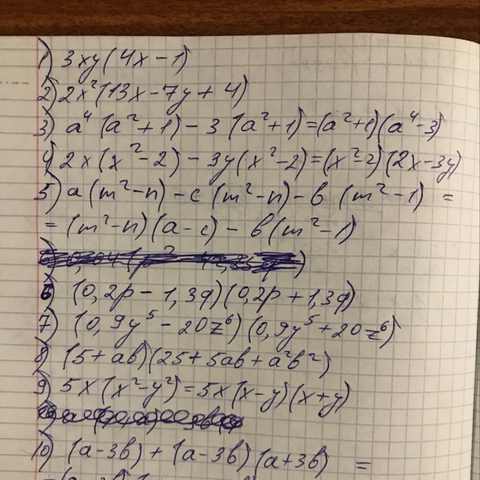 1) 3xy(4x-1)
2) 2x²(13x-7y+4)
3) a⁴(a²+1)-3(a²+1)=(a²+1)(a⁴-3)
4) 2x(x²-2)-3y(x²-2)=(x²-2)(2x-3y)
5) a(m²-n)-c(m²-n)-b(m²-1)=
=(m²-n)(a-c)-b(m²-1)
6) (0,2p-1,3q)(0,2p+1,3q)
7) (0,9y⁵-20z⁶)(0,9y⁵+20z⁶)
8) (5+ab)(25+5ab+a²b²)
9) 5x(x²-y²)=5x(x-y)(x+y)
10) (a-3b)+(a-3b)(a+3b) =